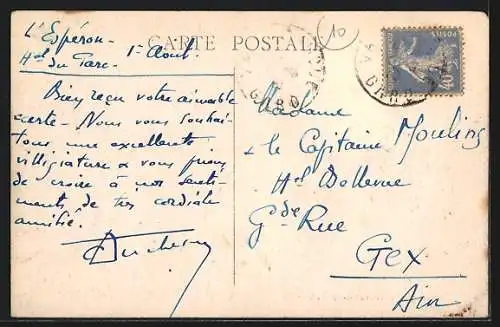 L'Espérou
Hôtel du Parc
1er Août
CARTE POSTALE
Bien reçu votre aimable
carte - Nous vous souhai-
tons une excellente
villégiature & vous prions
de croire à nos senti-
ments de très cordiale
amitié.
GARD
GARD
POSTES
40c
Madame
& le Capitaine Moulins
Hôtel Bellevue
Gde Rue
Gex
Ain